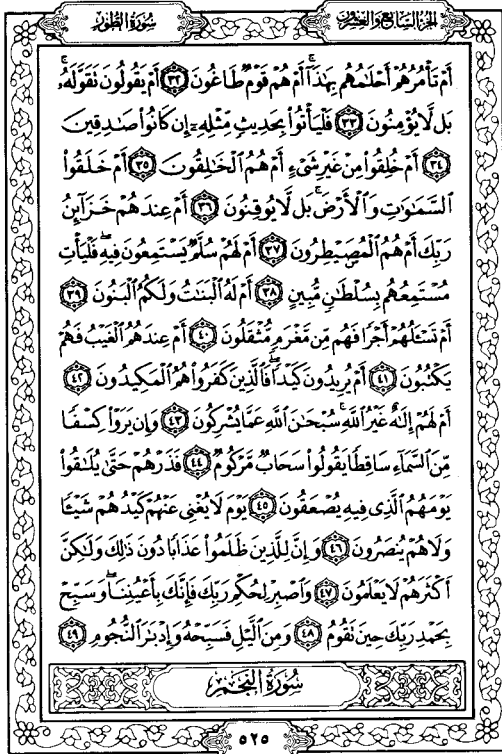 سُورَةُ الطُّورِ
الجزء السابع والعشرون
أَمْ تَأْمُرُهُمْ أَحْلَٰمُهُم بِهَٰذَآ ۚ أَمْ هُمْ قَوْمٌ طَاغُونَ ٣٢ أَمْ يَقُولُونَ تَقَوَّلَهُۥ ۚ
بَل لَّا يُؤْمِنُونَ ٣٣ فَلْيَأْتُوا۟ بِحَدِيثٍ مِّثْلِهِۦٓ إِن كَانُوا۟ صَٰدِقِينَ
٣٤ أَمْ خُلِقُوا۟ مِنْ غَيْرِ شَىْءٍ أَمْ هُمُ ٱلْخَٰلِقُونَ ٣٥ أَمْ خَلَقُوا۟
ٱلسَّمَٰوَٰتِ وَٱلْأَرْضَ ۚ بَل لَّا يُوقِنُونَ ٣٦ أَمْ عِندَهُمْ خَزَآئِنُ
رَبِّكَ أَمْ هُمُ ٱلْمُصَۣيْطِرُونَ ٣٧ أَمْ لَهُمْ سُلَّمٌ يَسْتَمِعُونَ فِيهِ ۖ فَلْيَأْتِ
مُسْتَمِعُهُم بِسُلْطَٰنٍ مُّبِينٍ ٣٨ أَمْ لَهُ ٱلْبَنَٰتُ وَلَكُمُ ٱلْبَنُونَ ٣٩
أَمْ تَسْـَٔلُهُمْ أَجْرًا فَهُم مِّن مَّغْرَمٍ مُّثْقَلُونَ ٤٠ أَمْ عِندَهُمُ ٱلْغَيْبُ فَهُمْ
يَكْتُبُونَ ٤١ أَمْ يُرِيدُونَ كَيْدًا ۖ فَٱلَّذِينَ كَفَرُوا۟ هُمُ ٱلْمَكِيدُونَ ٤٢
أَمْ لَهُمْ إِلَٰهٌ غَيْرُ ٱللَّهِ ۚ سُبْحَٰنَ ٱللَّهِ عَمَّا يُشْرِكُونَ ٤٣ وَإِن يَرَوْا۟ كِسْفًا
مِّنَ ٱلسَّمَآءِ سَاقِطًا يَقُولُوا۟ سَحَابٌ مَّرْكُومٌ ٤٤ فَذَرْهُمْ حَتَّىٰ يُلَٰقُوا۟
يَوْمَهُمُ ٱلَّذِى فِيهِ يُصْعَقُونَ ٤٥ يَوْمَ لَا يُغْنِى عَنْهُمْ كَيْدُهُمْ شَيْـًٔا
وَلَا هُمْ يُنصَرُونَ ٤٦ وَإِنَّ لِلَّذِينَ ظَلَمُوا۟ عَذَابًا دُونَ ذَٰلِكَ وَلَٰكِنَّ
أَكْثَرَهُمْ لَا يَعْلَمُونَ ٤٧ وَٱصْبِرْ لِحُكْمِ رَبِّكَ فَإِنَّكَ بِأَعْيُنِنَا ۖ وَسَبِّحْ
بِحَمْدِ رَبِّكَ حِينَ تَقُومُ ٤٨ وَمِنَ ٱلَّيْلِ فَسَبِّحْهُ وَإِدْبَٰرَ ٱلنُّجُومِ ٤٩
سُورَةُ النَّجْمِ
٥٢٥